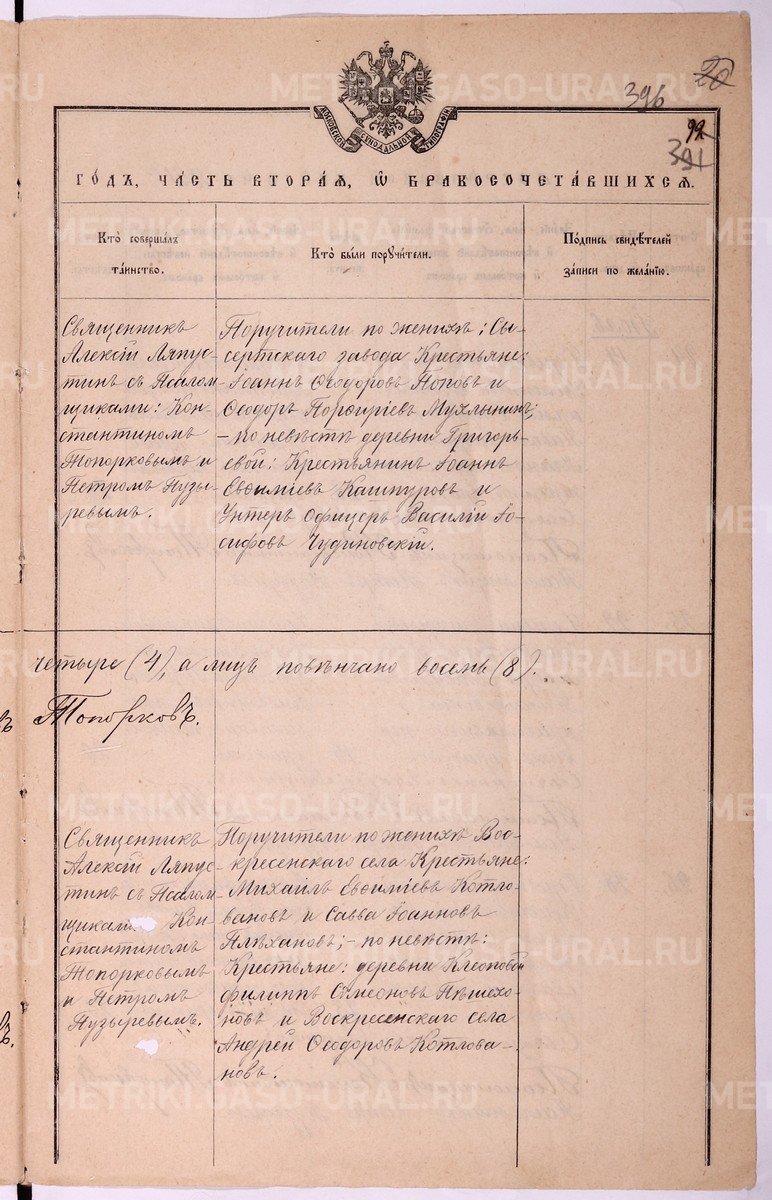 20
396
92
391
МОСКОВСКОЙ СУНОДАЛЬНОЙ ТИПОГРАФІИ
ГОДЪ, ЧАСТЬ ВТОРАЯ, Ѡ БРАКОСОЧЕТАВШИХСЯ.
Кто совершалъ
таинство.
Кто были поручители.
Подпись свидѣтелей
записи по желанію.
Священникъ
Алексій Ляпус-
тинъ съ Псалом-
щиками: Кон-
стантиномъ
Топорковымъ и
Петромъ Пузы-
ревымъ.
Поручители по женихѣ: Сы-
сертскаго завода Крестьяне:
Іоаннъ Ѳеодоровъ Поповъ и
Ѳеодоръ Порфиріевъ Мухлынинъ;
– по невѣстѣ деревни Григорь-
евой: Крестьянинъ Іоаннъ
Евѳиміевъ Кашпуровъ и
Унтеръ Офицеръ Василій Іо-
сифовъ Чудиновскій.
четыре (4), а лицъ повѣнчано восемь (8).
въ Топорковъ.
Священникъ
Алексій Ляпус-
тинъ съ Псалом-
щиками Кон-
стантиномъ
Топорковымъ
и Петромъ
Пузыревымъ.
въ.
Поручители по женихѣ Вос-
кресенскаго села Крестьяне:
Михаилъ Евѳиміевъ Котло-
вановъ и Савва Іоанновъ
Плѣхановъ; – по невѣстѣ:
Крестьяне: деревни Клеоповой
Филиппъ Симеоновъ Пѣшехо-
новъ и Воскресенскаго села
Андрей Ѳеодоровъ Котлова-
новъ.
METRIKI.GASO-URAL.RU